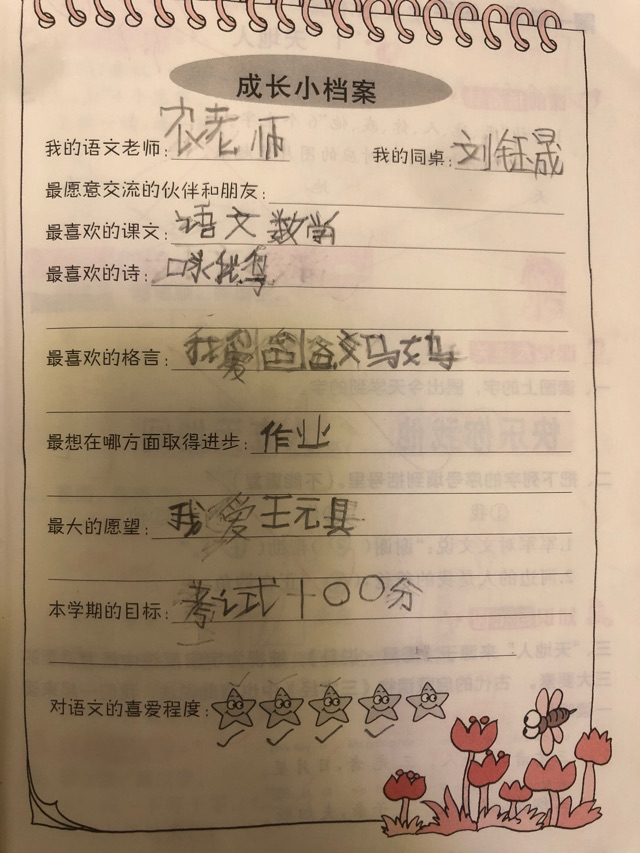 成长小档案
我的语文老师：农老师 我的同桌：刘钰晟
最愿意交流的伙伴和朋友：
最喜欢的课文：语文数学
最喜欢的诗：咏鹅
最喜欢的格言：我爱
最想在哪方面取得进步：作业
最大的愿望：我爱王元具
本学期的目标：考试十〇〇分
对语文的喜爱程度：